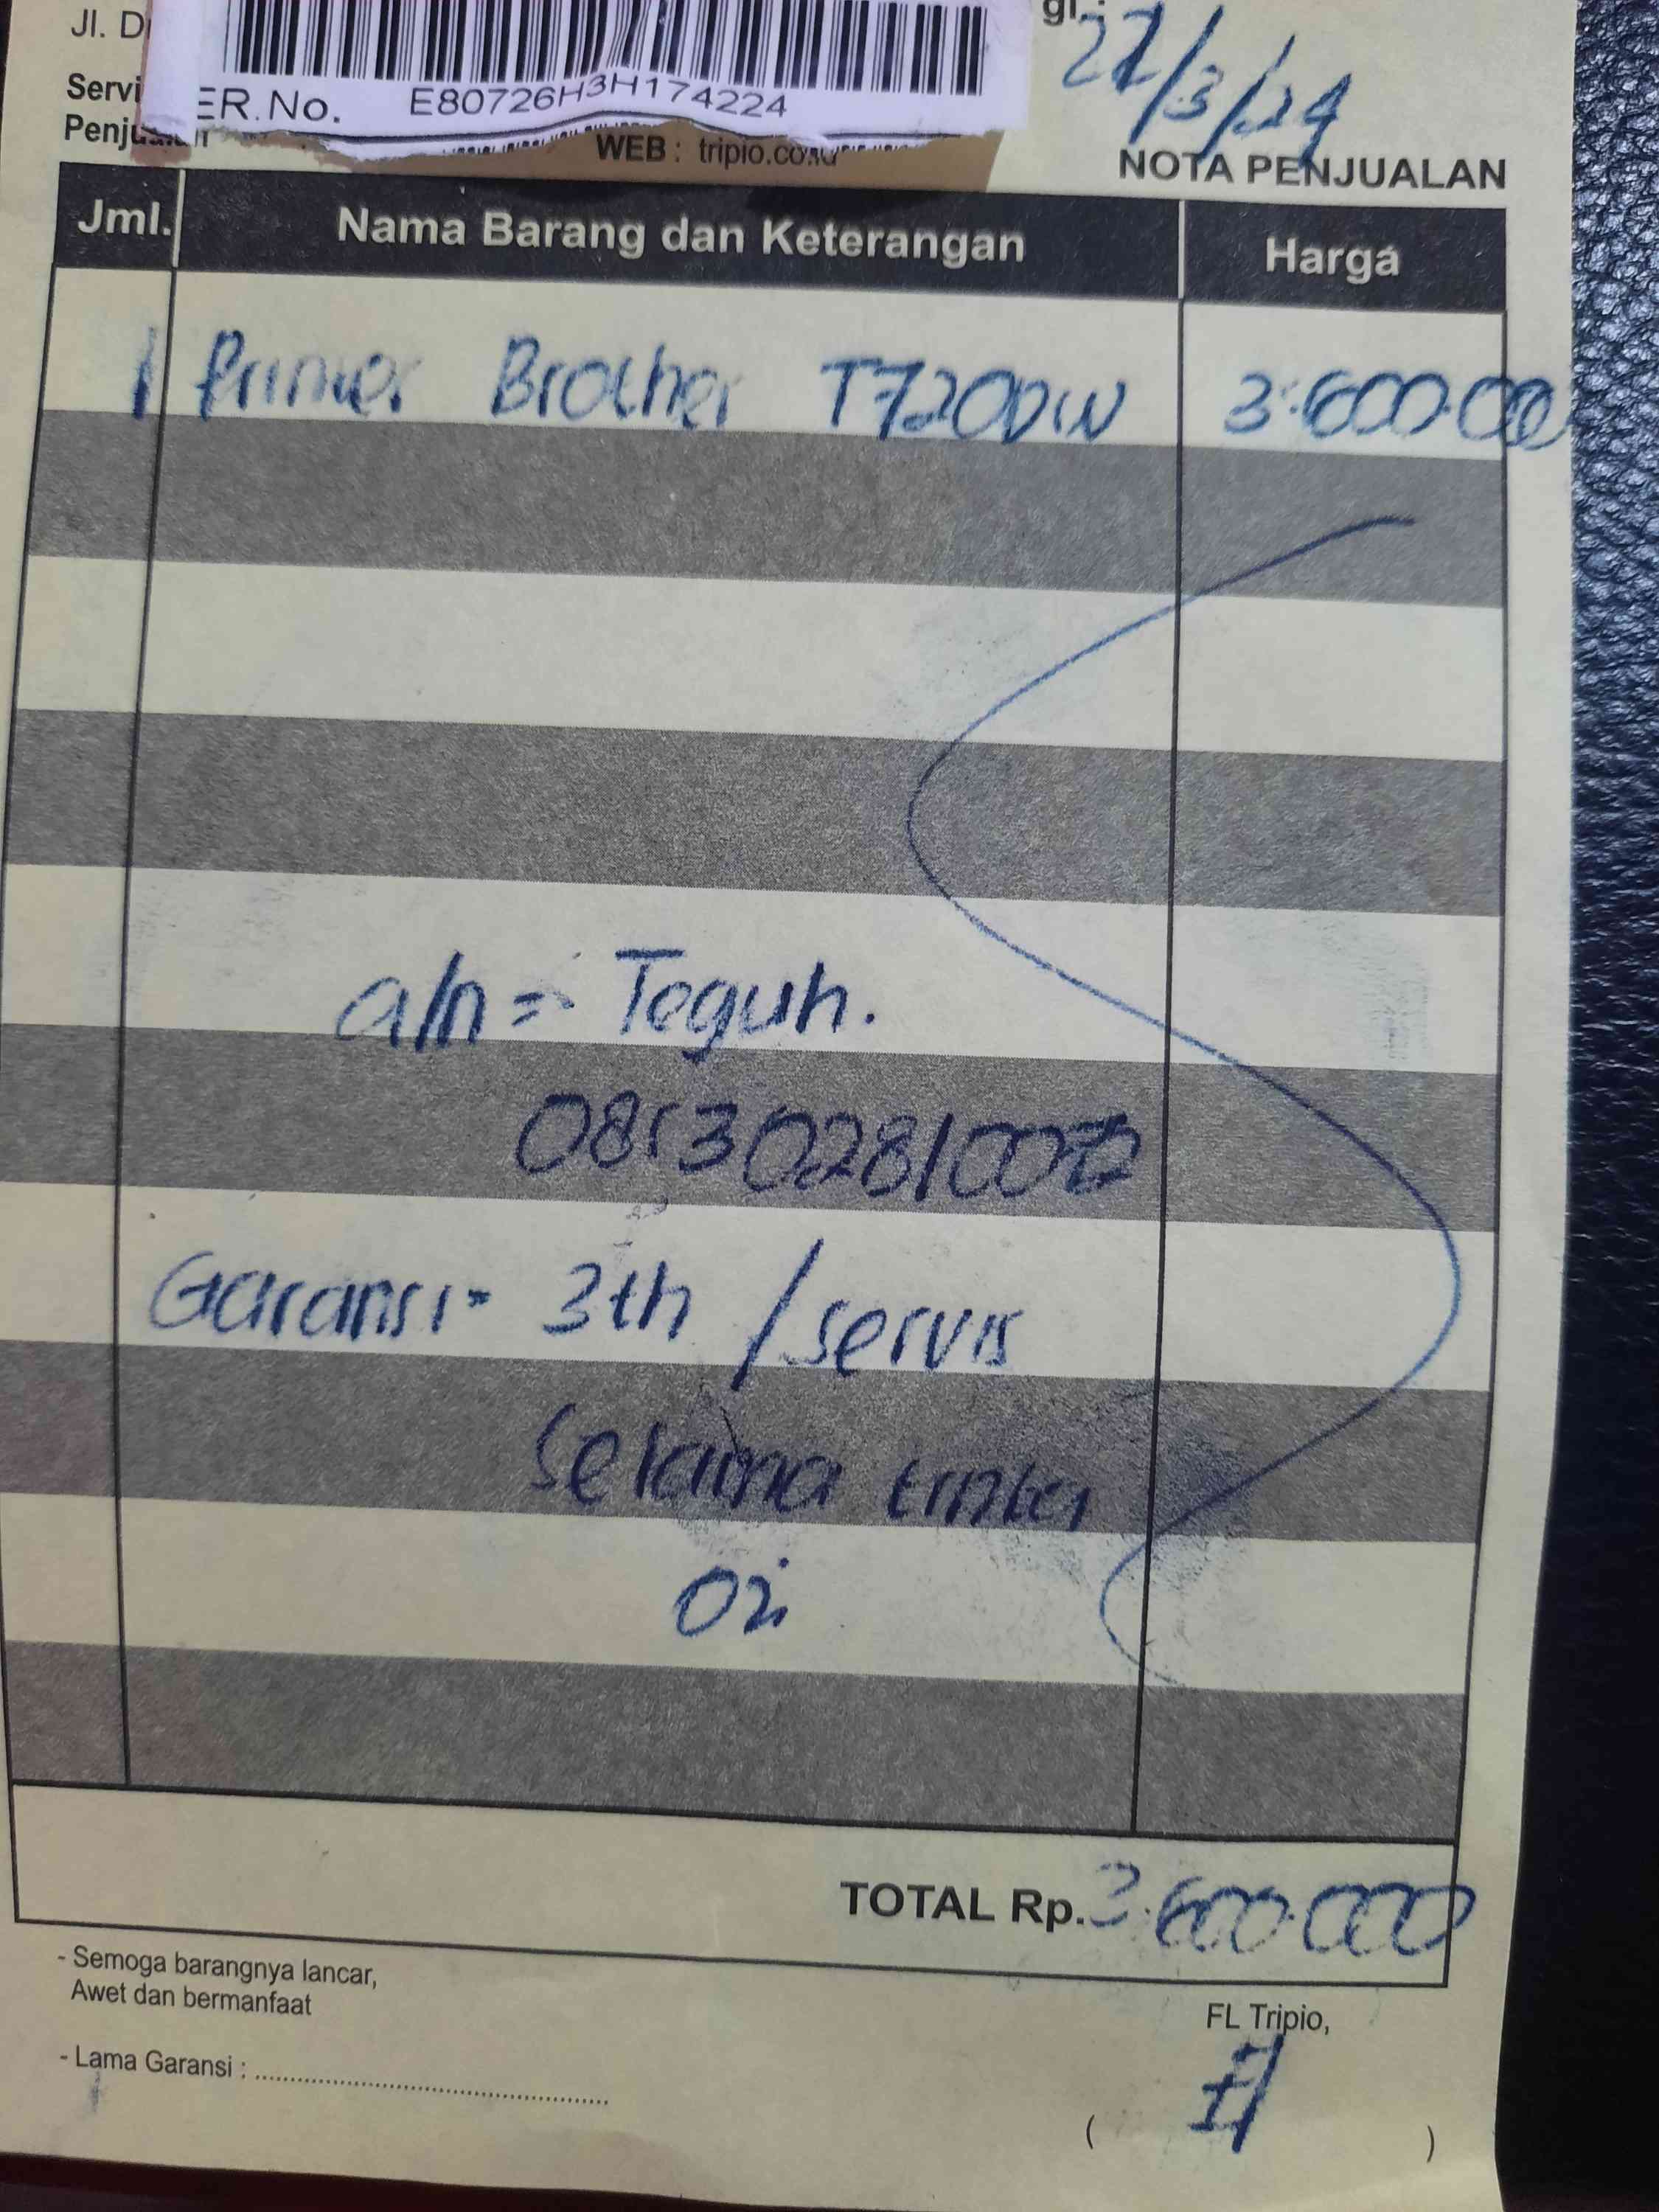 Jl. D
gl. :
27/3/24
Servi
Penjualan
ER.No. E80726H3H174224
WEB : tripio.co.id
NOTA PENJUALAN
Jml. Nama Barang dan Keterangan Harga
1 Printer Brother T720DW 3.600.000
a/n = Teguh.
Garansi - 3th / servis
selama tinta
ori
TOTAL Rp. 3.600.000
- Semoga barangnya lancar,
Awet dan bermanfaat
FL Tripio,
- Lama Garansi : ........................................
( )